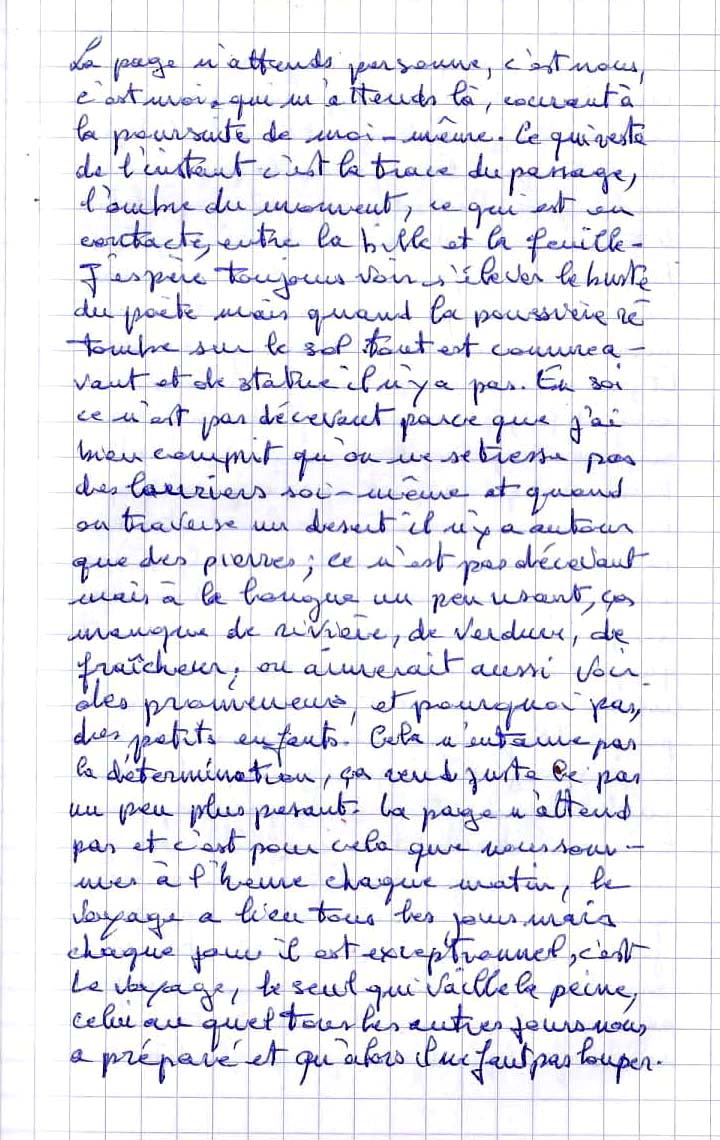 La page n'attends personne, c'est nous,
c'est moi, qui m'attends là, courant à
la poursuite de moi-même. Ce qui reste
de l'instant c'est la trace du passage,
l'ombre du moment, ce qui est en
contacte, entre la bille et la feuille-
J'espère toujours voir s'élever le buste
du poète mais quand la poussière re
tombe sur le sol tout est comme a-
vant et de statue il n'y a pas. En soi
ce n'est pas décevant parce que j'ai
bien comprit qu'on ne se tresse pas
des lauriers soi-même et quand
on traverse un desert il n'y a autour
que des pierres; ce n'est pas décevant
mais à la longue un peu usant, ça
manque de rivière, de verdure, de
fraîcheur, on aimerait aussi voir
des promeneurs, et pourquoi pas,
des petits enfants. Cela n'entame pas
la détermination, ça rend juste le pas
un peu plus pesant. La page n'attend
pas et c'est pour cela que nous som-
mes à l'heure chaque matin, le
voyage a lieu tous les jours mais
chaque jour il est exceptionnel, c'est
Le voyage, le seul qui vaille la peine,
celui au quel tous les autres jours nous
a préparé et qu'alors il ne faut pas louper.